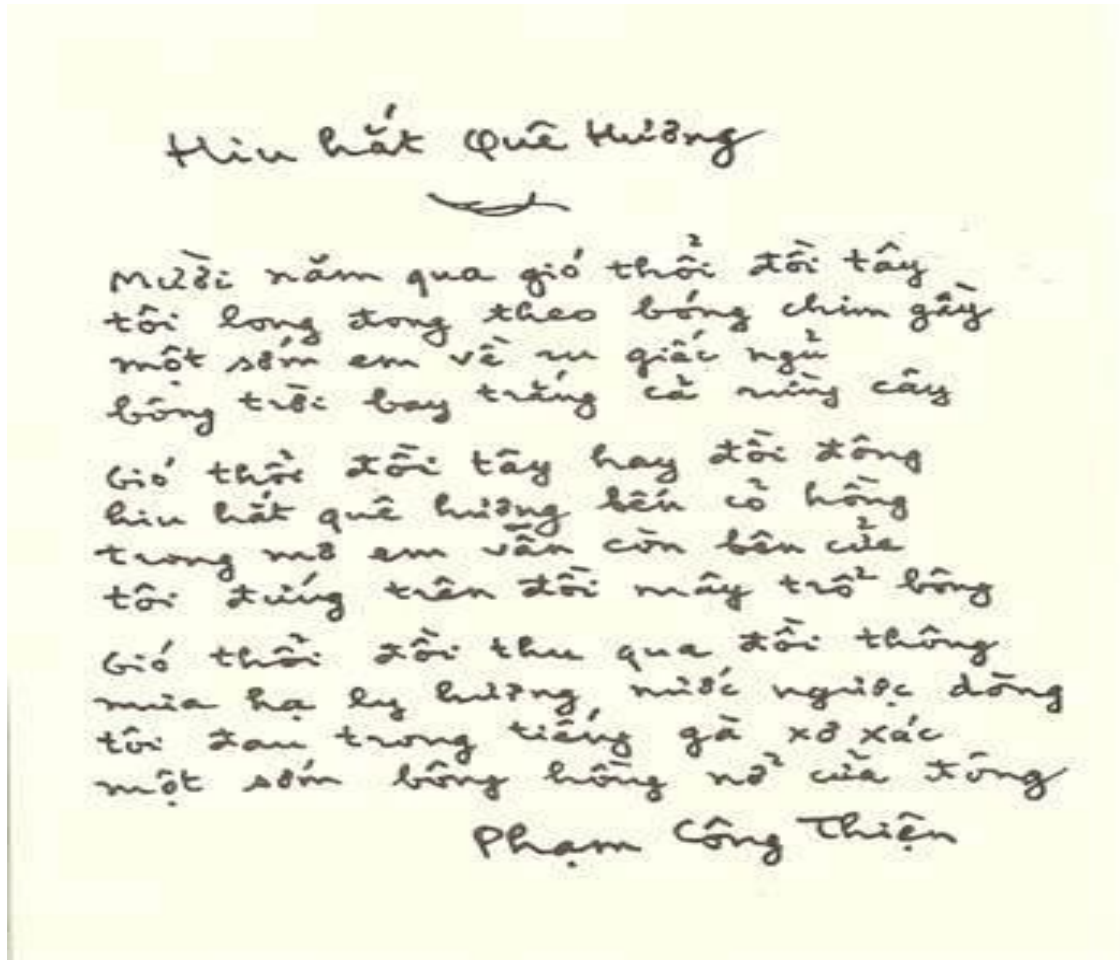 Hiu hắt Quê Hương
Mười năm qua gió thổi đồi tây
tôi long đong theo bóng chim gầy
một sớm em về ru giấc ngủ
bông trời bay trắng cả rừng cây
Gió thổi đồi tây hay đồi đông
hiu hắt quê hương bến cỏ hồng
trong mơ em vẫn còn bên cửa
tôi đứng trên đồi mây trổ bông
Gió thổi đồi thu qua đồi thông
mùa hạ ly hương nước ngược dòng
tôi đau trong tiếng gà xơ xác
một sớm bông hồng nở cửa đông
Phạm Công Thiện